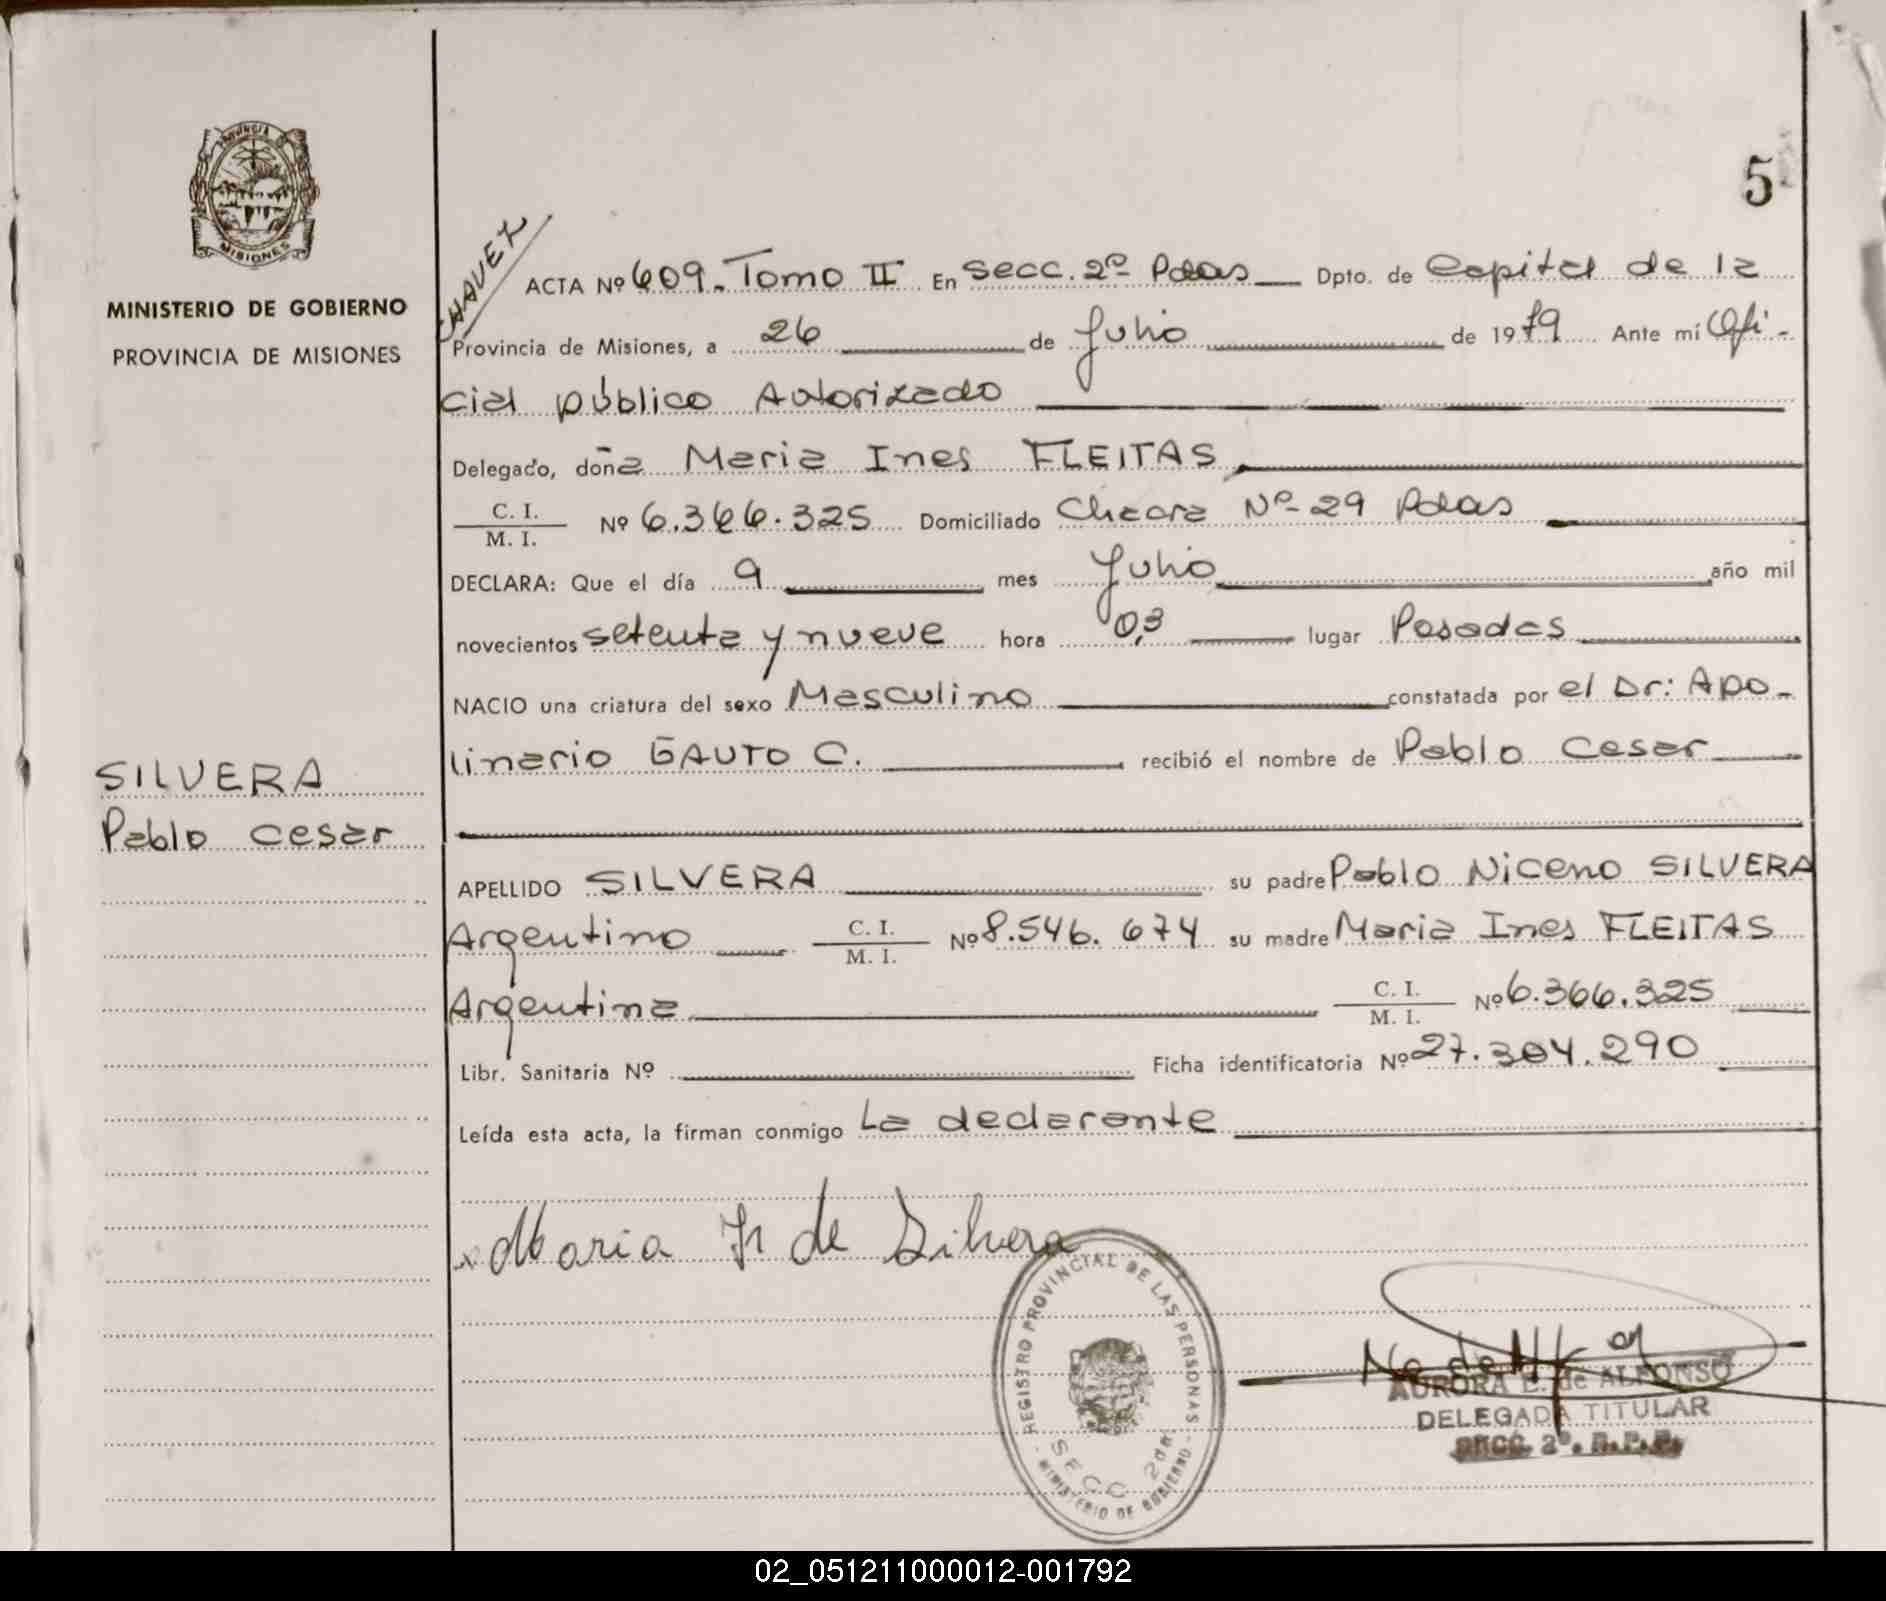 PROVINCIA
MISIONES
MINISTERIO DE GOBIERNO
PROVINCIA DE MISIONES
SILVERA
Pablo Cesar
5
CHAVEZ
ACTA Nº 609. Tomo II En Secc. 2º Pdas Dpto. de Capital de la
Provincia de Misiones, a 26 de Julio de 1979 Ante mí Ofi-
cial público Autorizado
Delegado, doña Maria Ines FLEITAS
C. I.
M. I.
Nº 6.366.325 Domiciliado Chacra Nº 29 Pdas
DECLARA: Que el día 9 mes Julio año mil
novecientos setenta y nueve hora 0,3 lugar Posadas
NACIO una criatura del sexo Masculino constatada por el Dr: Apo-
linario GAUTO C. recibió el nombre de Pablo Cesar
APELLIDO SILVERA su padre Pablo Niceno SILVERA
Argentino C. I. / M. I. Nº 8.546.674 su madre Maria Ines FLEITAS
Argentina C. I. / M. I. Nº 6.366.325
Libr. Sanitaria Nº Ficha identificatoria Nº 27.304.290
Leída esta acta, la firman conmigo La declarante
Maria F de Silvera
REGISTRO PROVINCIAL DE LAS PERSONAS
SECC 2da
MINISTERIO DE GOBIERNO
AURORA E. de ALFONSO
DELEGADA TITULAR
SECC. 2º. R.P.P.
02_051211000012-001792